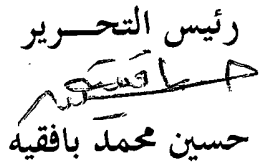 رئيس التحـــرير
حسين محمد بافقيه